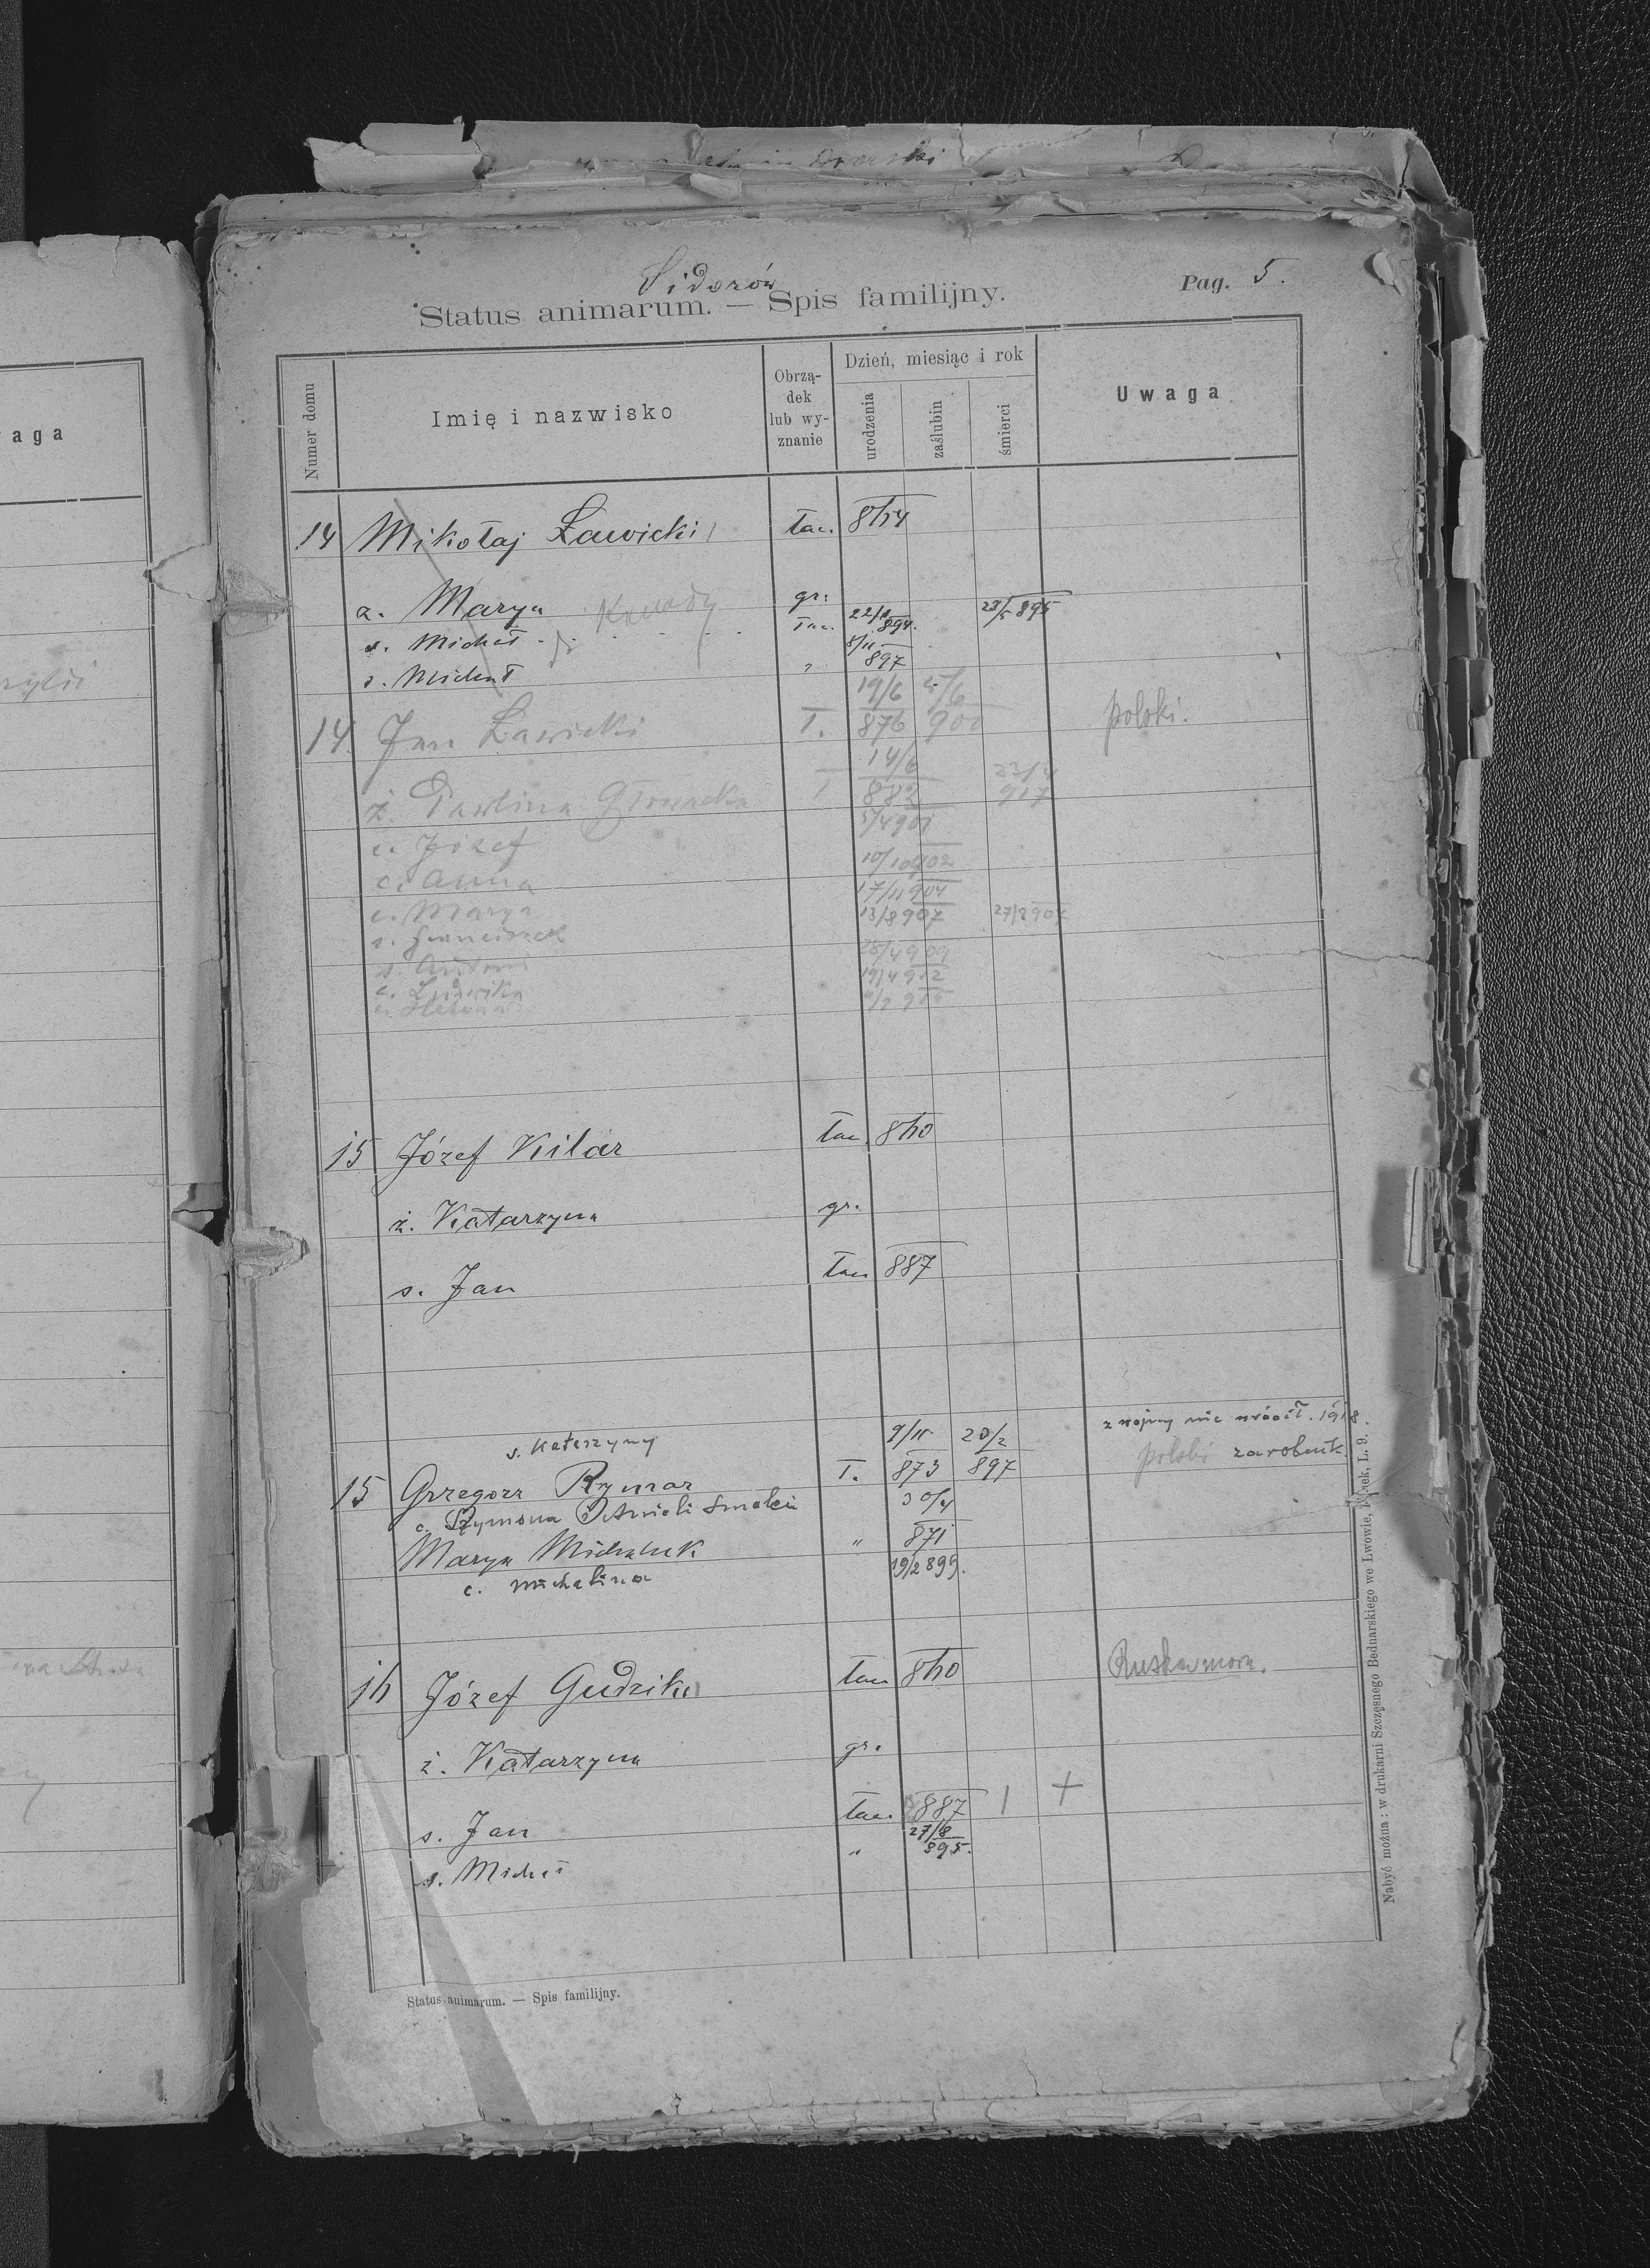 Sidorów
Pag. 5.
Status animarum. — Spis familijny.
Numer domu
Imię i nazwisko
Obrzą-
dek
lub wy-
znanie
Dzień, miesiąc i rok
urodzenia
zaślubin
śmierci
Uwaga
aga
14 Mikołaj Ławicki łac.
ż. Marya gr.
s. Michał łac. 894. 895
s. Michał " 5/11 897
14. Jan Ławicki ł. 19/6 876 900 polski.
ż. Pawlina ł 14/6 883 917
c. Józef 5/4 901
c. Anna 10/10 902
c. Marya 17/11 904
s. Franciszek 13/8 907 27/8 907
s. Antoni 28/4 909
c. Ludwika 19/4 912
c. Helena
15 Józef Kilar łac. 860
ż. Katarzyna gr.
s. Jan łac 887
z wojny nie wrócił. 1918.
s. Katarzyny
15 Grzegorz Rymar ł. 9/11 873 20/2 897 polski zarobnik
c. Szymona i Anieli
Marya Michaluk " 30/4 871
c. Michalina 19/2 899.
16 Józef Gudzik łac 860 Ruska mowa.
ż. Katarzyna gr.
s. Jan łac. 887 +
s. Michał " 27/8 895.
Status animarum. — Spis familijny.
Nabyć można: w drukarni Szczęsnego Bednarskiego we Lwowie, Rynek, L. 9.